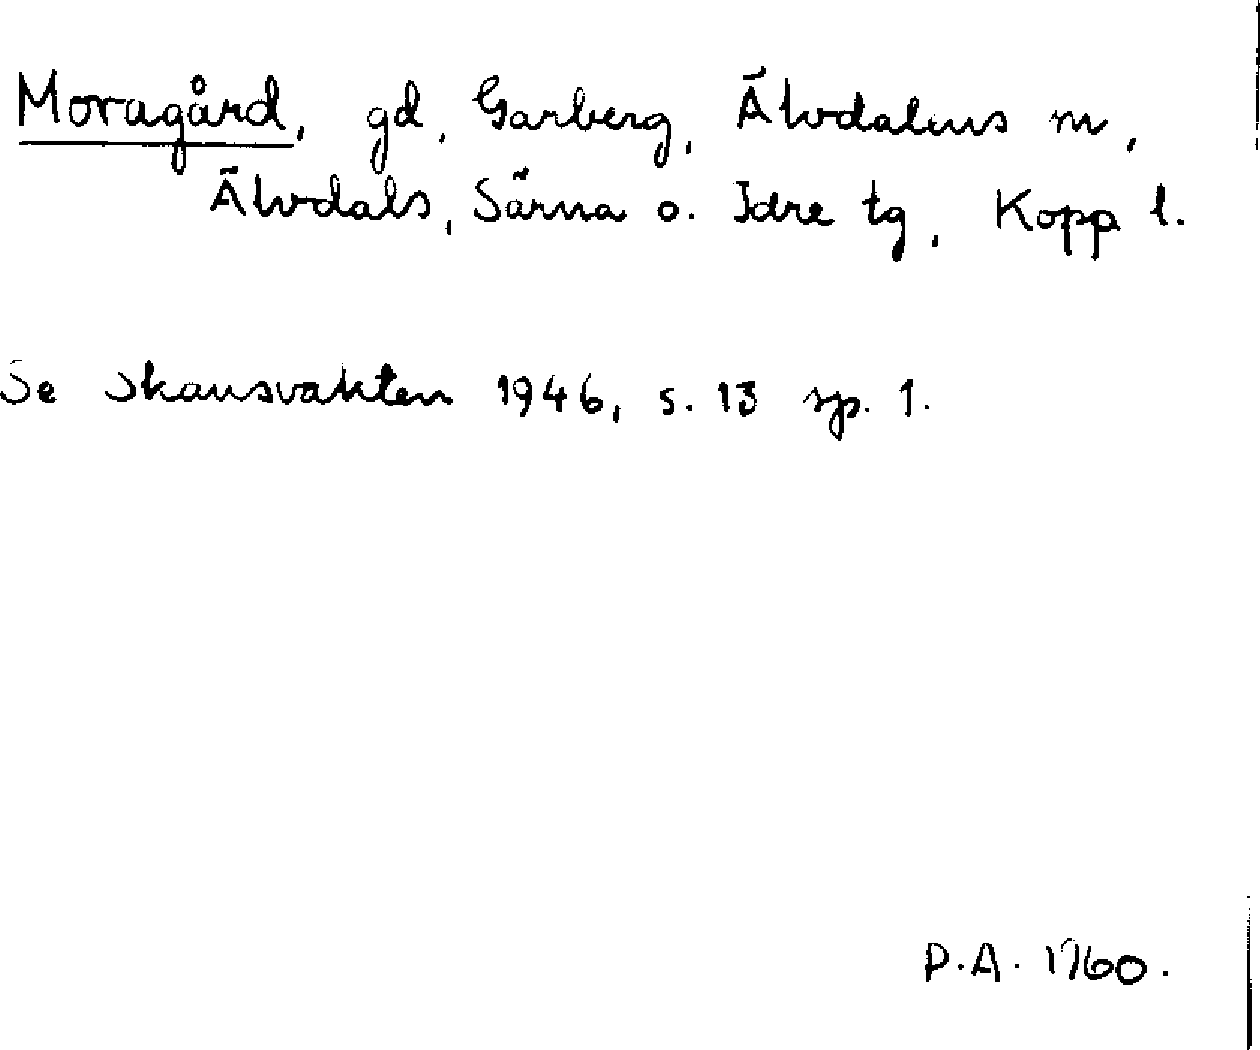 Moragård, gd, Garberg, Älvdalens m,
Älvdals, Särna o. Idre tg, Kopp l.
Se Skansvakten 1946, s. 13 sp. 1.
P.A. 1960.